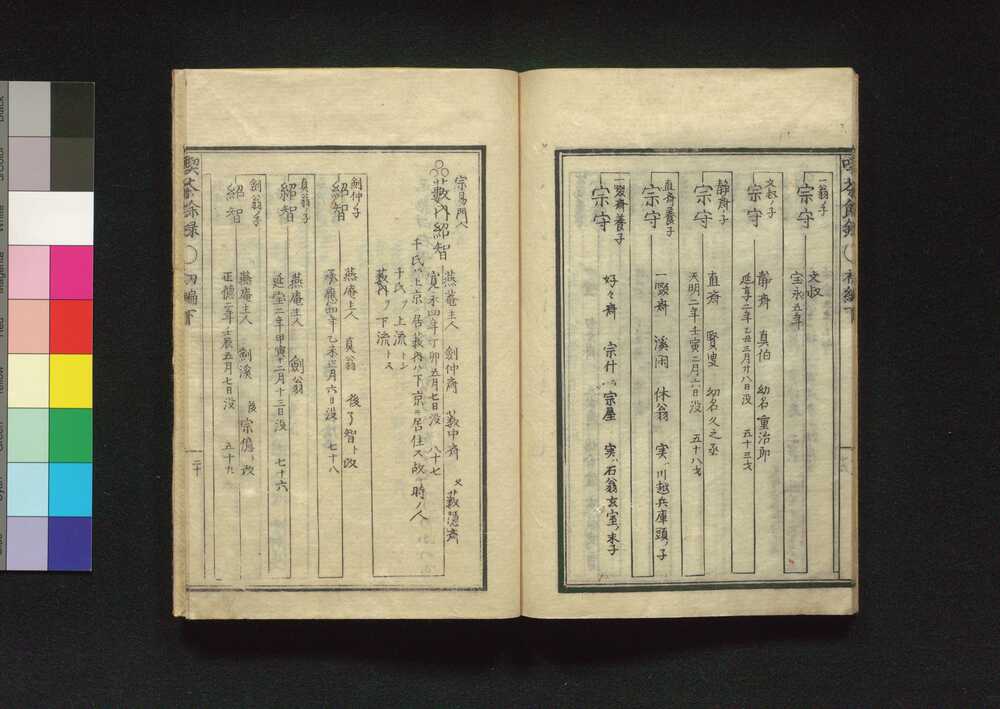 一翁ノ子
宗守
文叔
宝永五年
文叔ノ子
宗守
静斎 真伯 幼名重治郎
延享二年乙丑三月廿八日没 五十三才
静斎ノ子
宗守
直斎 賢叟 幼名久之丞
天明二年壬寅二月六日没 五十八才
直斎養子
宗守
一啜斎 溪閑 休翁 実ハ川越兵庫頭ノ子
一啜斎養子
宗守
好々斎 宗什 宗屋 実ハ石翁玄室ノ末子
宗易門人
藪内紹智
燕菴主人 劍仲斎 藪中斎 又 藪隠斎
寛永四年丁卯五月七日没 八十七
千氏ハ上京ニ居藪内ハ下京ニ居住ス故ニ時ノ人
千氏ヲ上流トシ
藪内ヲ下流トス
劍仲ノ子
紹智
燕庵主人 真翁 後了智ト改
承應四年乙未正月六日没 七十八
真翁ノ子
紹智
燕庵主人 劍翁
延宝二年甲寅十二月十三日没 七十六
劍翁ノ子
紹智
燕庵主人 劍溪 後宗儋ト改
正德二年壬辰五月七日没 五十九
喫茶餘録 初編下
二十